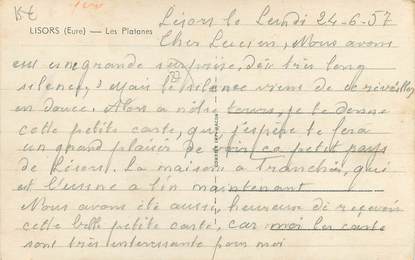 Lisors le Lundi 24-6-57
LISORS (Eure) — Les Platanes
Cher Lucien, Nous avons
eut une grande surprise, dès très long
silence, mais le silence viens de ce réveiller
en douce. Alors a nôtre tours, je te donne
cette petite carte, que j'espère te fera
un grand plaisir de voir ce petit pays
de Lisors. La maison a Tranchés, qui
est l'usine a lin maintenant
Nous avons été aussi, heureux de reçevoir
cette belle petite carte, car moi les carte
sont très interessante pour moi